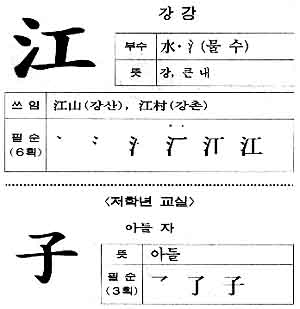 江
강 강
부수 水·氵(물 수)
뜻 강, 큰 내
쓰임 江山(강산), 江村(강촌)
필순 (6획) 丶 氵 江
<저학년 교실>
子
아들 자
뜻 아들
필순 (3획) 乛 了 子